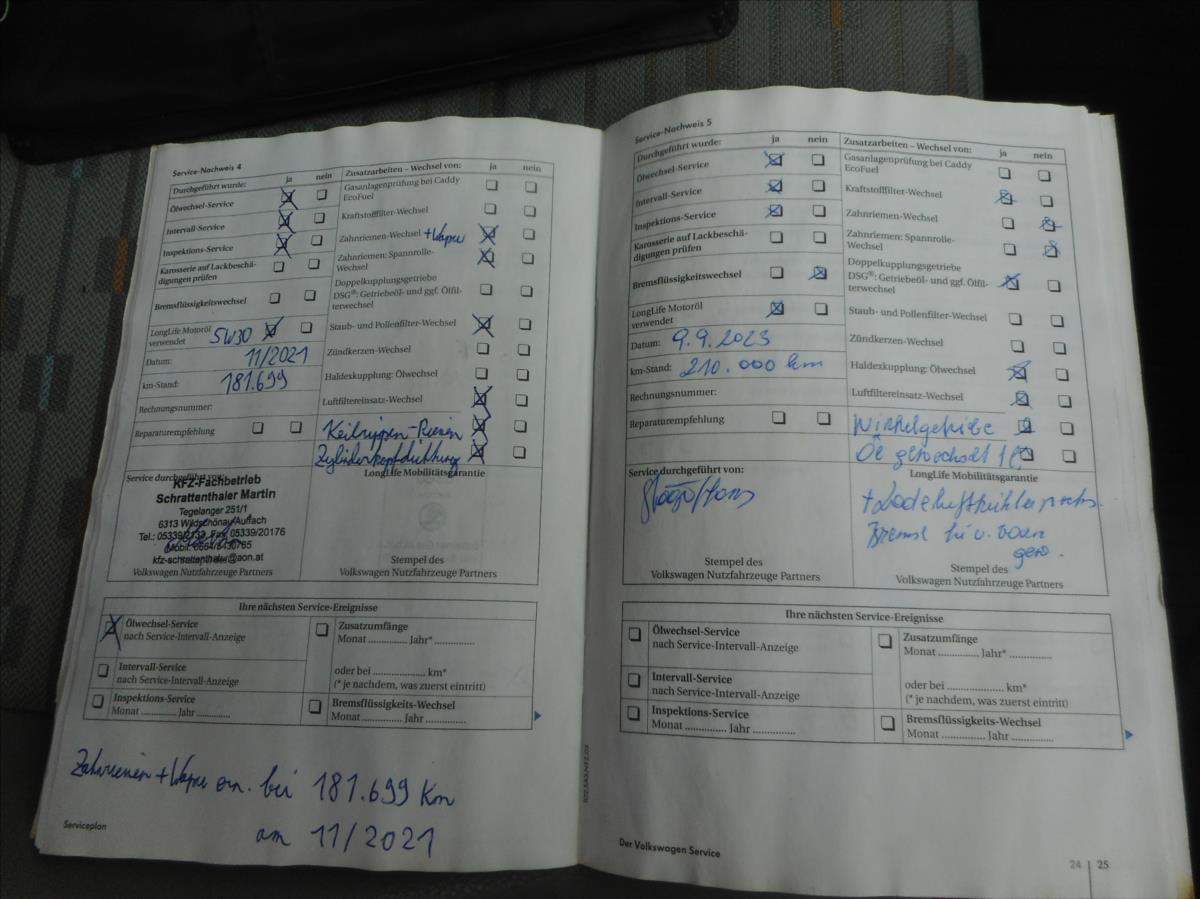 Service-Nachweis 4
Durchgeführt wurde: ja nein
Ölwechsel-Service
Intervall-Service
Inspektions-Service
Karosserie auf Lackbeschä-
digungen prüfen
Bremsflüssigkeitswechsel
LongLife Motoröl
verwendet 5W30
Datum: 11/2021
km-Stand: 181.699
Rechnungsnummer:
Reparaturempfehlung
Zusatzarbeiten – Wechsel von: ja nein
Gasanlagenprüfung bei Caddy
EcoFuel
Kraftstofffilter-Wechsel
Zahnriemen-Wechsel + Wapu
Zahnriemen: Spannrolle-
Wechsel
Doppelkupplungsgetriebe
DSG®: Getriebeöl- und ggf. Ölfil-
terwechsel
Staub- und Pollenfilter-Wechsel
Zündkerzen-Wechsel
Haldexkupplung: Ölwechsel
Luftfiltereinsatz-Wechsel
Keilrippen-Riemen
Zylinderkopfdichtung
Service durchgeführt von:
KFZ-Fachbetrieb
Schrattenthaler Martin
Tegelanger 251/1
6313 Wildschönau/Auffach
Tel.: 05339/2132, Fax 05339/20176
kfz-schrattenthaler@aon.at
Volkswagen Nutzfahrzeuge Partners
LongLife Mobilitätsgarantie
Stempel des
Volkswagen Nutzfahrzeuge Partners
Ihre nächsten Service-Ereignisse
Ölwechsel-Service
nach Service-Intervall-Anzeige
Intervall-Service
nach Service-Intervall-Anzeige
Inspektions-Service
Monat ............ Jahr ............
Zusatzumfänge
Monat ............ Jahr* ............
oder bei ................ km*
(* je nachdem, was zuerst eintritt)
Bremsflüssigkeits-Wechsel
Monat ............ Jahr ............
Zahnriemen + Wapu ern. bei 181.699 Km
am 11/2021
Serviceplan
Service-Nachweis 5
Durchgeführt wurde: ja nein
Ölwechsel-Service
Intervall-Service
Inspektions-Service
Karosserie auf Lackbeschä-
digungen prüfen
Bremsflüssigkeitswechsel
LongLife Motoröl
verwendet
Datum: 9.9.2023
km-Stand: 210.000 km
Rechnungsnummer:
Reparaturempfehlung
Zusatzarbeiten – Wechsel von: ja nein
Gasanlagenprüfung bei Caddy
EcoFuel
Kraftstofffilter-Wechsel
Zahnriemen-Wechsel
Zahnriemen: Spannrolle-
Wechsel
Doppelkupplungsgetriebe
DSG®: Getriebeöl- und ggf. Ölfil-
terwechsel
Staub- und Pollenfilter-Wechsel
Zündkerzen-Wechsel
Haldexkupplung: Ölwechsel
Luftfiltereinsatz-Wechsel
Winkelgetriebe
Öl gewechselt
Service durchgeführt von:
Stempel des
Volkswagen Nutzfahrzeuge Partners
LongLife Mobilitätsgarantie
+ Ladeluftkühler
Bremse hi u. vorn
gew.
Stempel des
Volkswagen Nutzfahrzeuge Partners
Ihre nächsten Service-Ereignisse
Ölwechsel-Service
nach Service-Intervall-Anzeige
Intervall-Service
nach Service-Intervall-Anzeige
Inspektions-Service
Monat ............ Jahr ............
Zusatzumfänge
Monat ............ Jahr* ............
oder bei ................ km*
(* je nachdem, was zuerst eintritt)
Bremsflüssigkeits-Wechsel
Monat ............ Jahr ............
Der Volkswagen Service
24 | 25